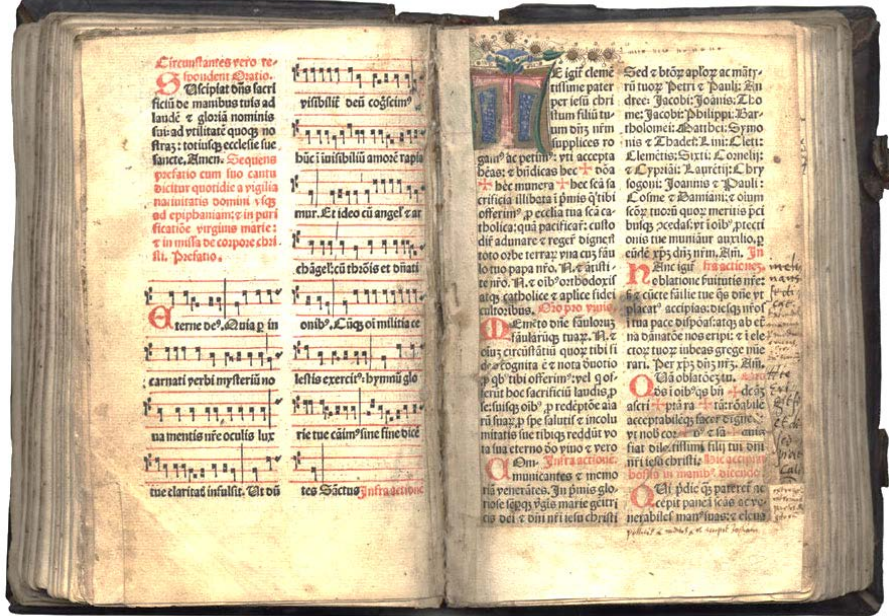 Circunstantes vero re-
spondent Oratio.
Suscipiat dn̄s sacri
ficiū de manibus tuis ad
laudē ⁊ gloriā nominis
sui: ad vtilitatē quoqꝫ no
straꝫ: totiusqꝫ ecclesie sue
sancte. Amen. Sequens
prefatio cum suo cantu
dicitur quotidie a vigilia
natiuitatis domini vsqꝫ
ad epiphaniam: ⁊ in puri
ficatiōe virginis marie:
⁊ in missa de corpore chri
sti. Prefatio.
Eterne deꝰ. Quia ꝑ in
carnati verbi mysteriū no
ua mentis nr̄e oculis lux
tue claritat̄ infulsit. Ut dū
visibilit̄ deū coḡscimꝰ
hūc ī īuisibiliū amorē rapia
mur. Et ideo cū angel̄ ⁊ ar
chāgel̄: cū thrōis et dn̄ati
onibꝰ. Cūqꝫ oī militia ce
lestis exercitꝰ: hymnū glo
rie tue cāimꝰ sine fine dicē
tes Sāctus Infra actionē
TE igit̄ clemē
tissime pater
per iesū chri
stum filiū tu
um dn̄ꝫ nr̄m
supplices ro
gamꝰ ac petimꝰ: vti accepta
hēas: ⁊ bn̄dicas hec ✠ dōa
✠ hec munera ✠ hec scā sa
crificia illibata ī pꝛīmis q̄ tibi
offerimꝰ ꝓ ecclīa tua scā ca-
tholica: quā pacificar̄: custo
dir̄ adunare ⁊ reger̄ digner̄
toto orbe terrar̄ vna cuꝫ fāu
lo tuo papa nr̄o. N. ⁊ ātisti-
te nr̄o. N. ⁊ oībꝰ orthodoxis
atqꝫ catholice ⁊ aplice fidei
cultoribus. Orō pro viuis.
Memēto dn̄e fāuloruꝫ
fāularūqꝫ tuar̄. N. ⁊
oīuꝫ circūstātiū quor̄ tibi fi
des cognita ē ⁊ nota deuotio
ꝓ qbꝰ tibi offerimꝰ: vel q of-
ferūt hoc sacrificiū laudis, ꝓ
se: suisqꝫ oībꝰ, ꝓ redēptōe aīa
rū suar̄, ꝓ spe salutis ⁊ incolu
mitatis sue tibiqꝫ reddūt vo
ta sua eterno dō viuo ⁊ vero
Com- Infra actione.
municantes ⁊ memo
riā venerātes. In pꝛīmis glo-
riose sēpqꝫ v̄gīs marie genitri
cis dei ⁊ dn̄i nr̄i iesu christi
Sed ⁊ btōꝝ aplōꝝ ac māty-
rū tuor̄ Petri ⁊ Pauli: An
dree: Jacobi: Joānis: Tho
me: Jacobi: Philippi: Bar-
tholomei: Matthei: Symo
nis ⁊ Thadei: Lini: Cleti:
Clemētis: Sixti: Cornelij:
⁊ Cypriāi: Laurētij: Chry
sogoni: Joannis ⁊ Pauli:
Cosme ⁊ Damiani: ⁊ oīum
scōꝝ tuorū quor̄ meritis p̄ci
busqꝫ ꝯcedas: vt ī oībꝰ, ꝓtecti
onis tue muniāur auxilio. ꝑ
eūdē xp̄ꝫ dn̄ꝫ nr̄m. Am̄. In
HAnc igit̄ fra actioneꝫ.
oblatione ẜuitutis nr̄e:
sꝫ ⁊ cūcte fāilie tue q̄s dn̄e vt
placatꝰ accipias: diesqꝫ nr̄os
ī tua pace dispōas: atqꝫ ab et̄
na dānatōe nos eripi: ⁊ ī ele
ctor̄ tuor̄ iubeas grege nūe
rari. Per xp̄ꝫ dn̄ꝫ nr̄ꝫ. Am̄.
QUā oblatōeꝫ tu
fiat dilectissimi filij tui dn̄i
nr̄i iesu christi. Hic accipiat
hostiā in manibꝰ dicendo
QUi p̄die q̄ꝫ pateret̄ ac
cepit paneꝫ ī scās ac ve-
nerabiles manꝰ suas: ⁊ eleua